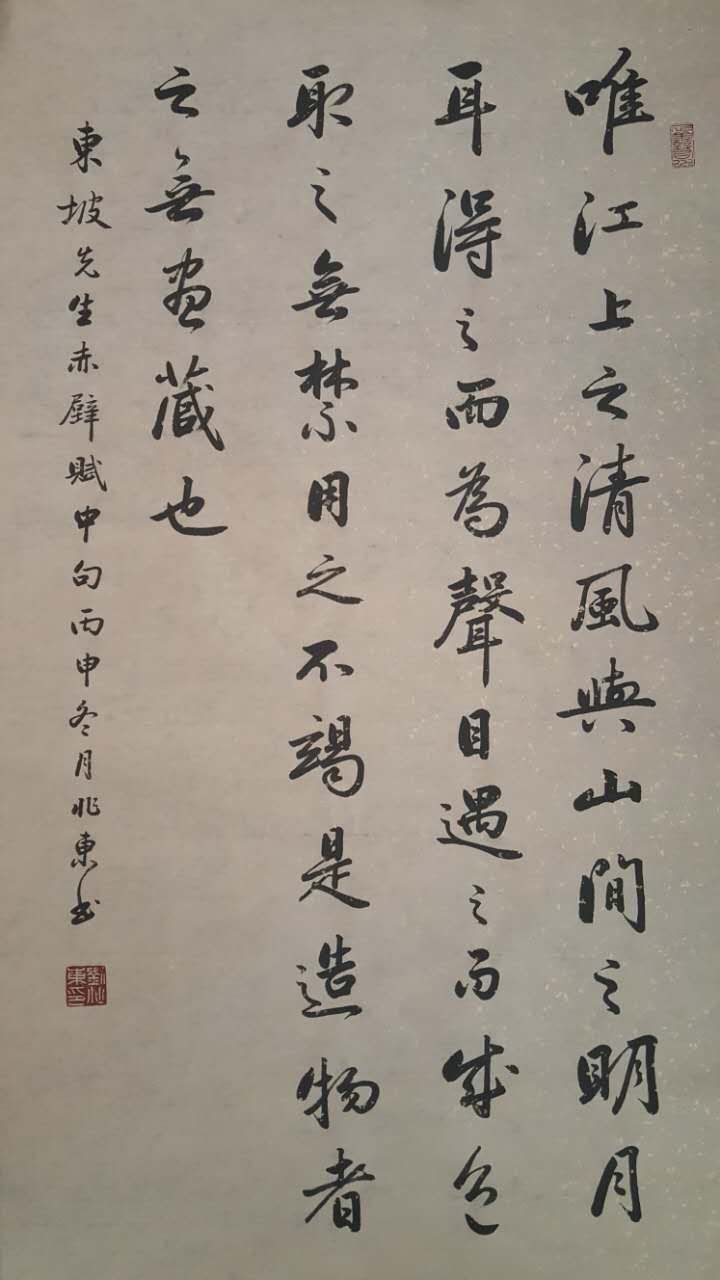 唯江上之清風與山間之明月
耳得之而為聲目遇之而成色
取之無禁用之不竭是造物者
之無盡藏也
東坡先生赤壁賦中句丙申冬月兆東书
劉兆東印